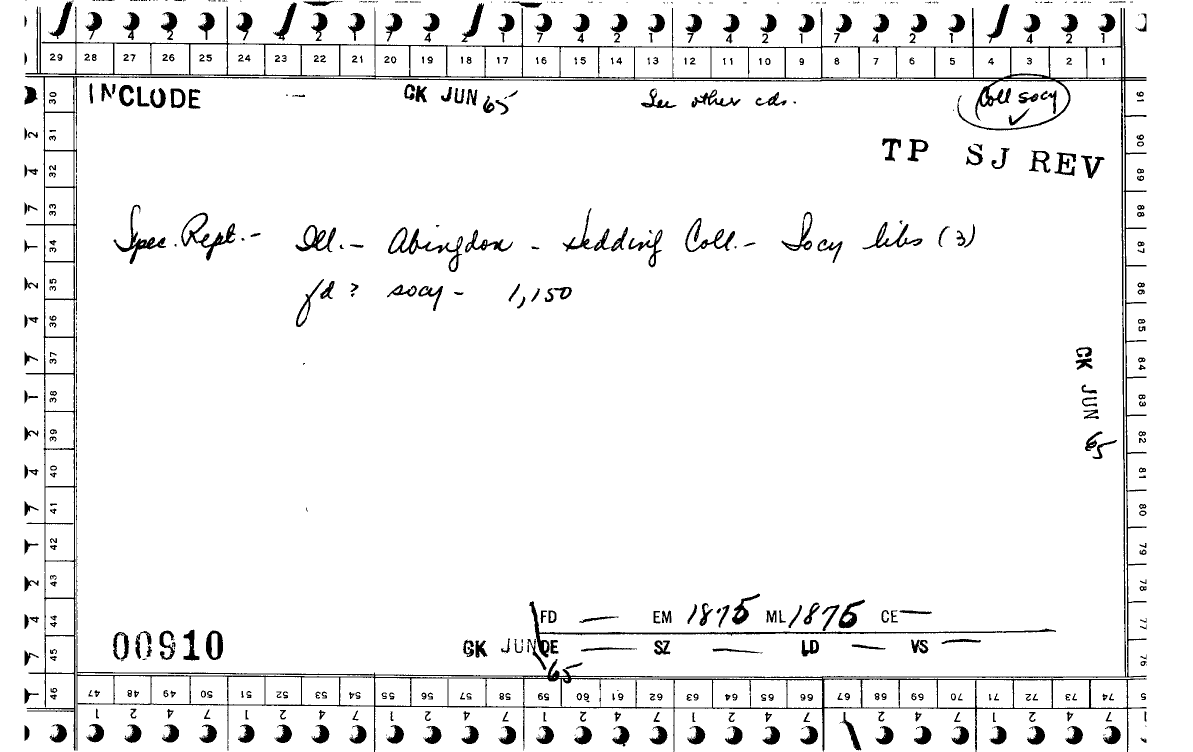 7 4 2 1 7 4 2 1 7 4 2 1 7 4 2 1 7 4 2 1 7 4 2 1 7 4 2 1
29 28 27 26 25 24 23 22 21 20 19 18 17 16 15 14 13 12 11 10 9 8 7 6 5 4 3 2 1
INCLUDE — CK JUN 65 See other cds. Coll socy ✓
TP SJ REV
Spec. Rept.- Ill.- Abingdon - Hedding Coll.- Socy libs (3)
fd ? socy - 1,150
CK JUN 65
FD — EM 1875 ML 1875 CE —
00910 CK JUN 65 DE — SZ — LD — VS —
30 31 32 33 34 35 36 37 38 39 40 41 42 43 44 45 46
91 90 89 88 87 86 85 84 83 82 81 80 79 78 77 76
47 48 49 50 51 52 53 54 55 56 57 58 59 60 61 62 63 64 65 66 67 68 69 70 71 72 73 74
1 2 4 7 1 2 4 7 1 2 4 7 1 2 4 7 1 2 4 7 1 2 4 7 1 2 4 7